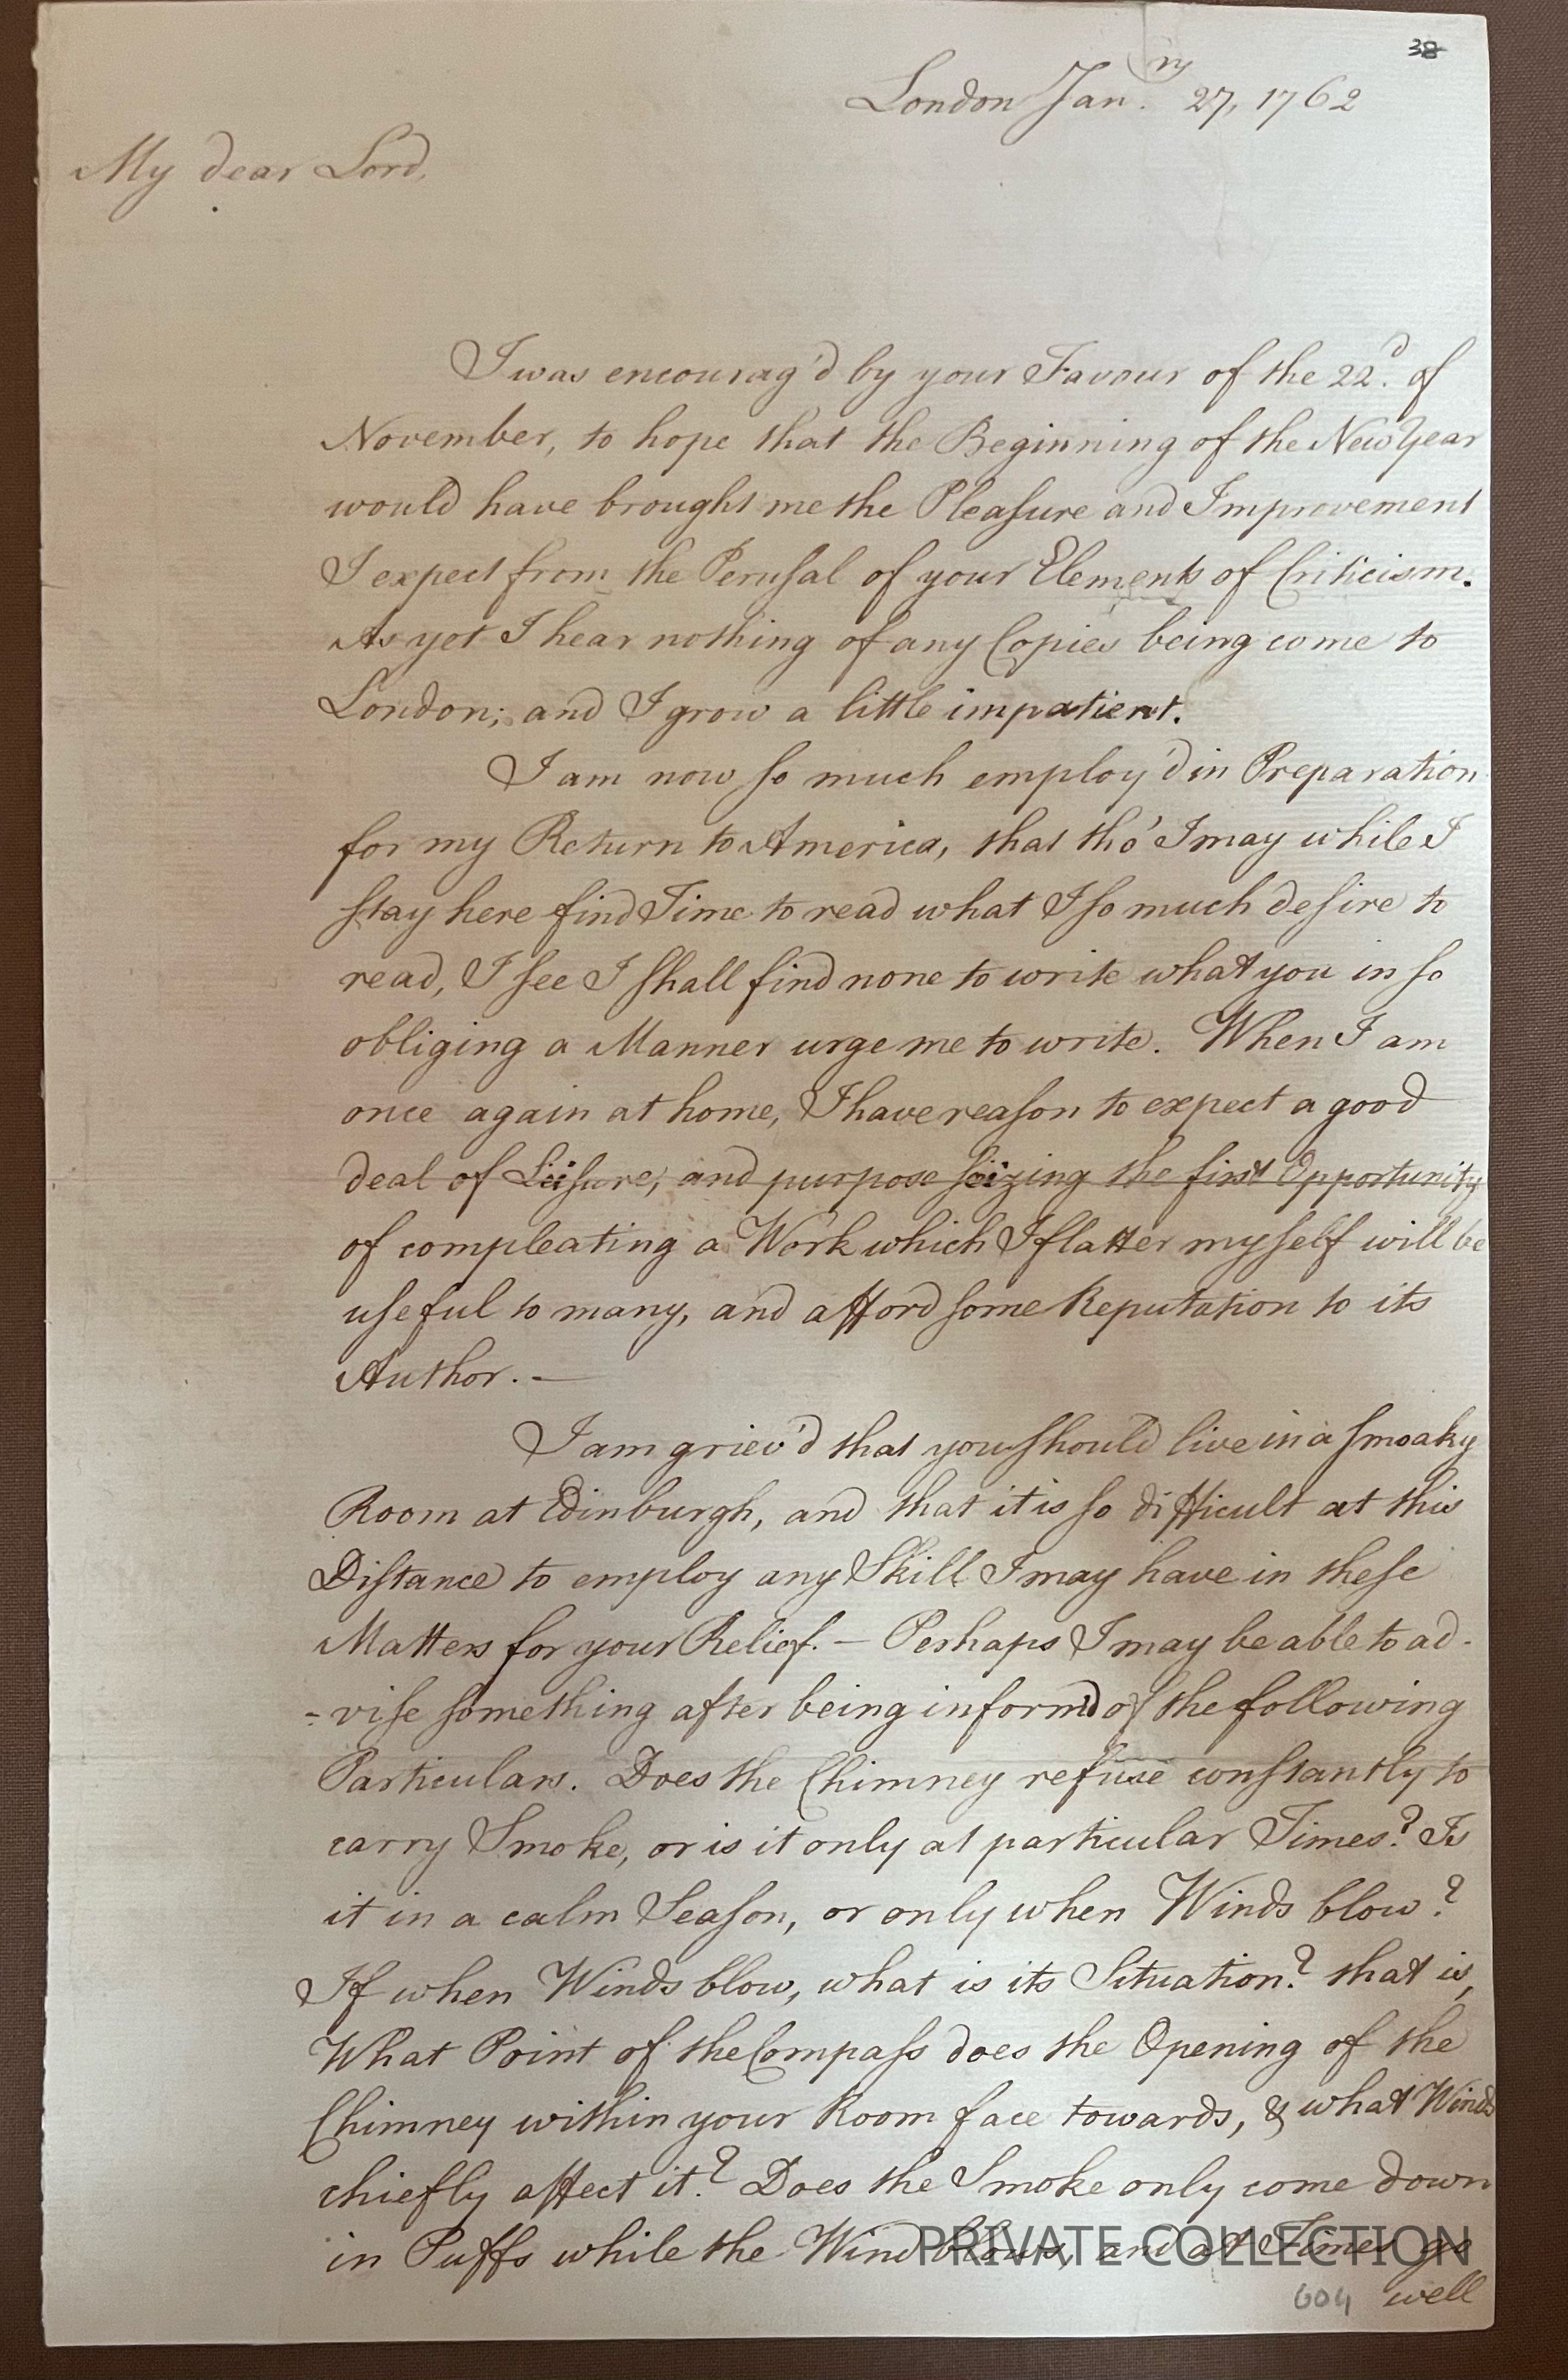 38
London Jan.ry 27, 1762
My dear Lord,
I was encourag'd by your Favour of the 22d. of
November, to hope that the Beginning of the New Year
would have brought me the Pleaſure and Improvement
I expect from the Peruſal of your Elements of Criticism.
As yet I hear nothing of any Copies being come to
London; and I grow a little impatient.
I am now ſo much employ'd in Preparation
for my Return to America, that tho' I may while I
ſtay here find Time to read what I ſo much deſire to
read, I ſee I ſhall find none to write what you in ſo
obliging a Manner urge me to write. When I am
once again at home, I have reaſon to expect a good
deal of Leiſure, and purpose ſeizing the first Opportunity
of compleating a Work which I flatter myſelf will be
uſeful to many, and afford ſome Reputation to its
Author. —
I am griev'd that you ſhould live in a ſmoaky
Room at Edinburgh, and that it is ſo difficult at this
Diſtance to employ any Skill I may have in theſe
Matters for your Relief. — Perhaps I may be able to ad-
-viſe ſomething after being inform'd of the following
Particulars. Does the Chimney refuse conſtantly to
carry Smoke, or is it only at particular Times? Is
it in a calm Seaſon, or only when Winds blow?
If when Winds blow, what is its Situation? that is,
What Point of the Compaſs does the Opening of the
Chimney within your Room face towards, & what Winds
chiefly affect it? Does the Smoke only come down
in Puffs while the Wind blows, and at Times go
PRIVATE COLLECTION
604 well